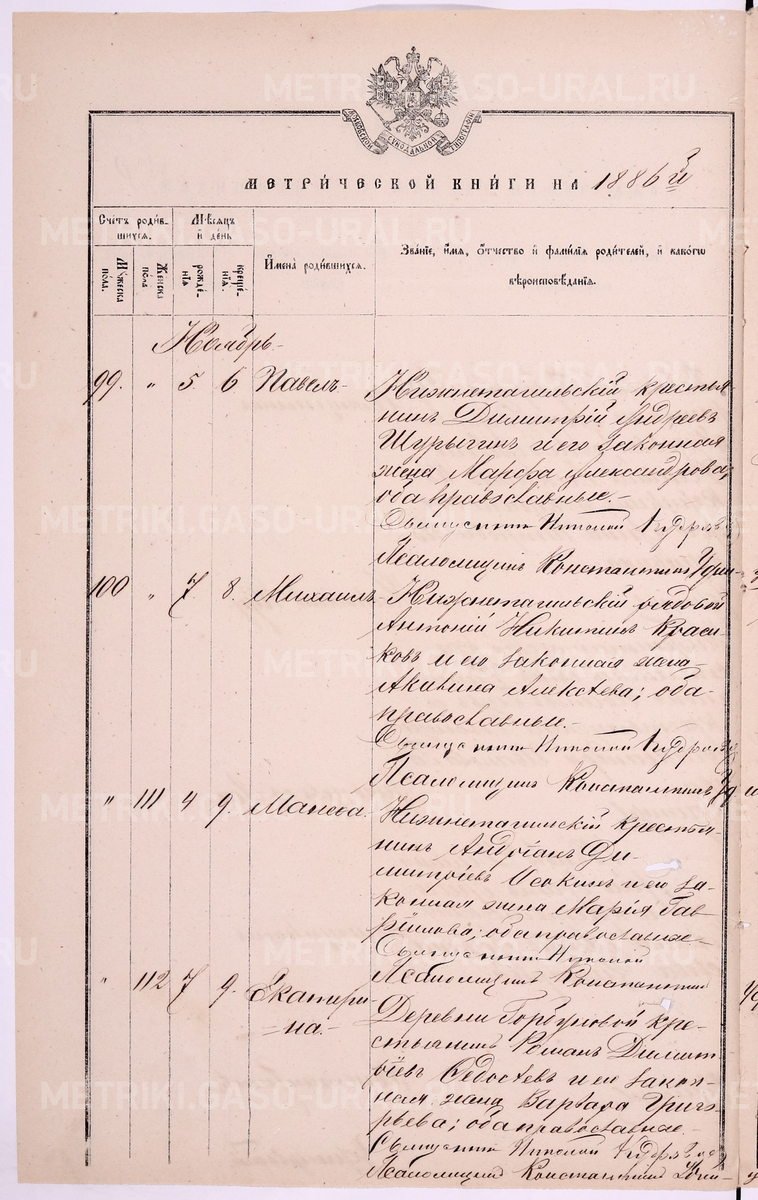 МОСКОВСКОЙ СУНОДАЛЬНОЙ ТИПОГРАФІИ
МЕТРИ́ЧЕСКОЙ КНИ́ГИ НА 1886й
Сче́тъ роди́в-
шихся.
Мѣ́сяцъ
и де́нь
Мꙋ́жеска
по́ла.
Же́нска
по́ла
рожде́-
нія
креще́-
нія.
Имена̀ роди́вшихся.
Зва́ніе, и́мя, о́тчество и фами́лія роди́телей, и како́гѡ
вѣроисповѣ́данія.
Ноябрь
99. " 5 6 Павелъ Нижнетагильскій крестья
нинъ Димитрій Андреевъ
Шурыгинъ и его законная
жена Марѳа Александрова;
оба православные.
Священникъ Николай
Псаломщикъ Константинъ
100 " 7 8. Михаилъ Нижнетагильскій рядовой
Антоній Никитинъ Краси
ковъ и его законная жена
Акилина Алексѣева; оба
православные.
Священникъ Николай
Псаломщикъ Константинъ
" 111 4 9. Нижнетагильскій крестья
нинъ Андріанъ Ди-
митріевъ Осокинъ и его за-
конная жена Марія Гав
рілова; оба православные
Священникъ Николай
Псаломщикъ Константинъ
" 112 7 9. Екатери-
на. Деревни Горбуновой кре-
стьянинъ Романъ Димит
ріевъ Ѳедосѣевъ и его закон-
ная жена Варвара Григо
рьева; оба православные
Священникъ Николай
Псаломщикъ Константинъ
METRIKI.GASO-URAL.RU